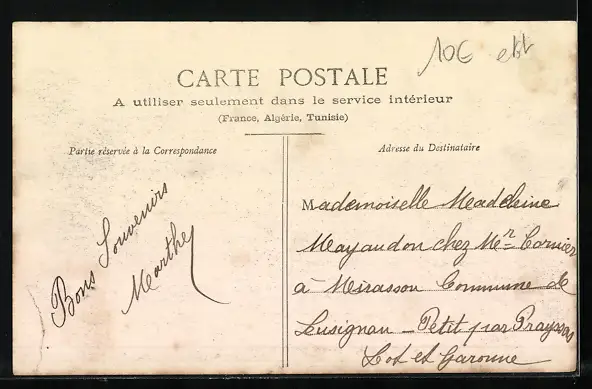 10€
CARTE POSTALE
A utiliser seulement dans le service intérieur
(France, Algérie, Tunisie)
Partie réservée à la Correspondance
Adresse du Destinataire
Bons Souvenirs
Marthe
Mademoiselle Madeleine
Mayaudon chez Mr Cornier
à Mirasson Commune de
Lusignan-Petit par Prayssas
Lot et Garonne